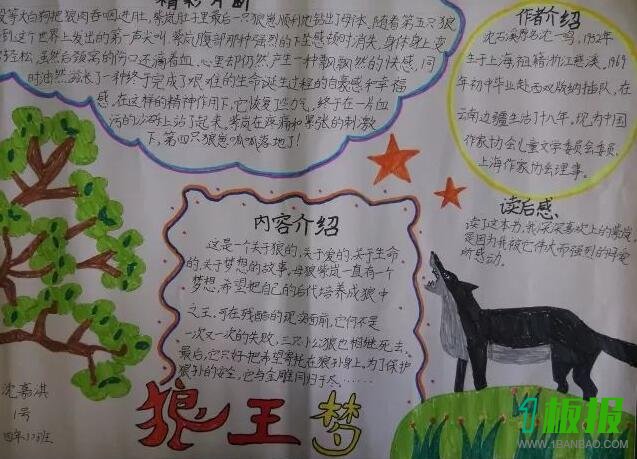 精彩片断
等大白狗把狼肉吞咽进肚,紫岚肚子里最后一只狼崽顺利地钻出了母体,随着第五只狼
到这个世界上发出的第一声尖叫,紫岚腹部那种强烈的下坠感顿时消失,身体身上变
轻松,虽然后颈窝的伤口还滴着血,心里却仍然产生一种飘飘然的快感,同
时油然滋长了一种终于完成了艰难的生命诞生过程的自豪感和幸福
感,在这样的精神作用下,它恢复了些力气,终于在一片血
污的沙砾上站了起来,紫岚在疼痛和紧张的刺激
下,第四只狼崽呱呱落地了!
作者介绍
沈石溪原名沈一鸣,1952年
生于上海,祖籍浙江慈溪,1969
年初中毕业赴西双版纳插队,在
云南边疆生活了十八年,现为中国
作家协会儿童文学委员会委员,
上海作家协会理事。
内容介绍
这是一个关于狼的,关于爱的,关于生命
的,关于梦想的故事,母狼紫岚一直有一个
梦想,希望把自己的后代培养成狼中
之王,可在残酷的现实面前,它们不是
一次又一次的失败,三只小公狼也相继死去,
最后,它只好把希望寄托在狼孙身上,为了保护
狼孙的安全,它与金雕同归于尽……
读后感
读了这本书,我深深喜欢上的紫岚,
是因为我被它伟大而强烈的母爱
所感动。
沈嘉淇
1号
四年
班
狼王梦
1板报
WWW.1BANBAO.COM